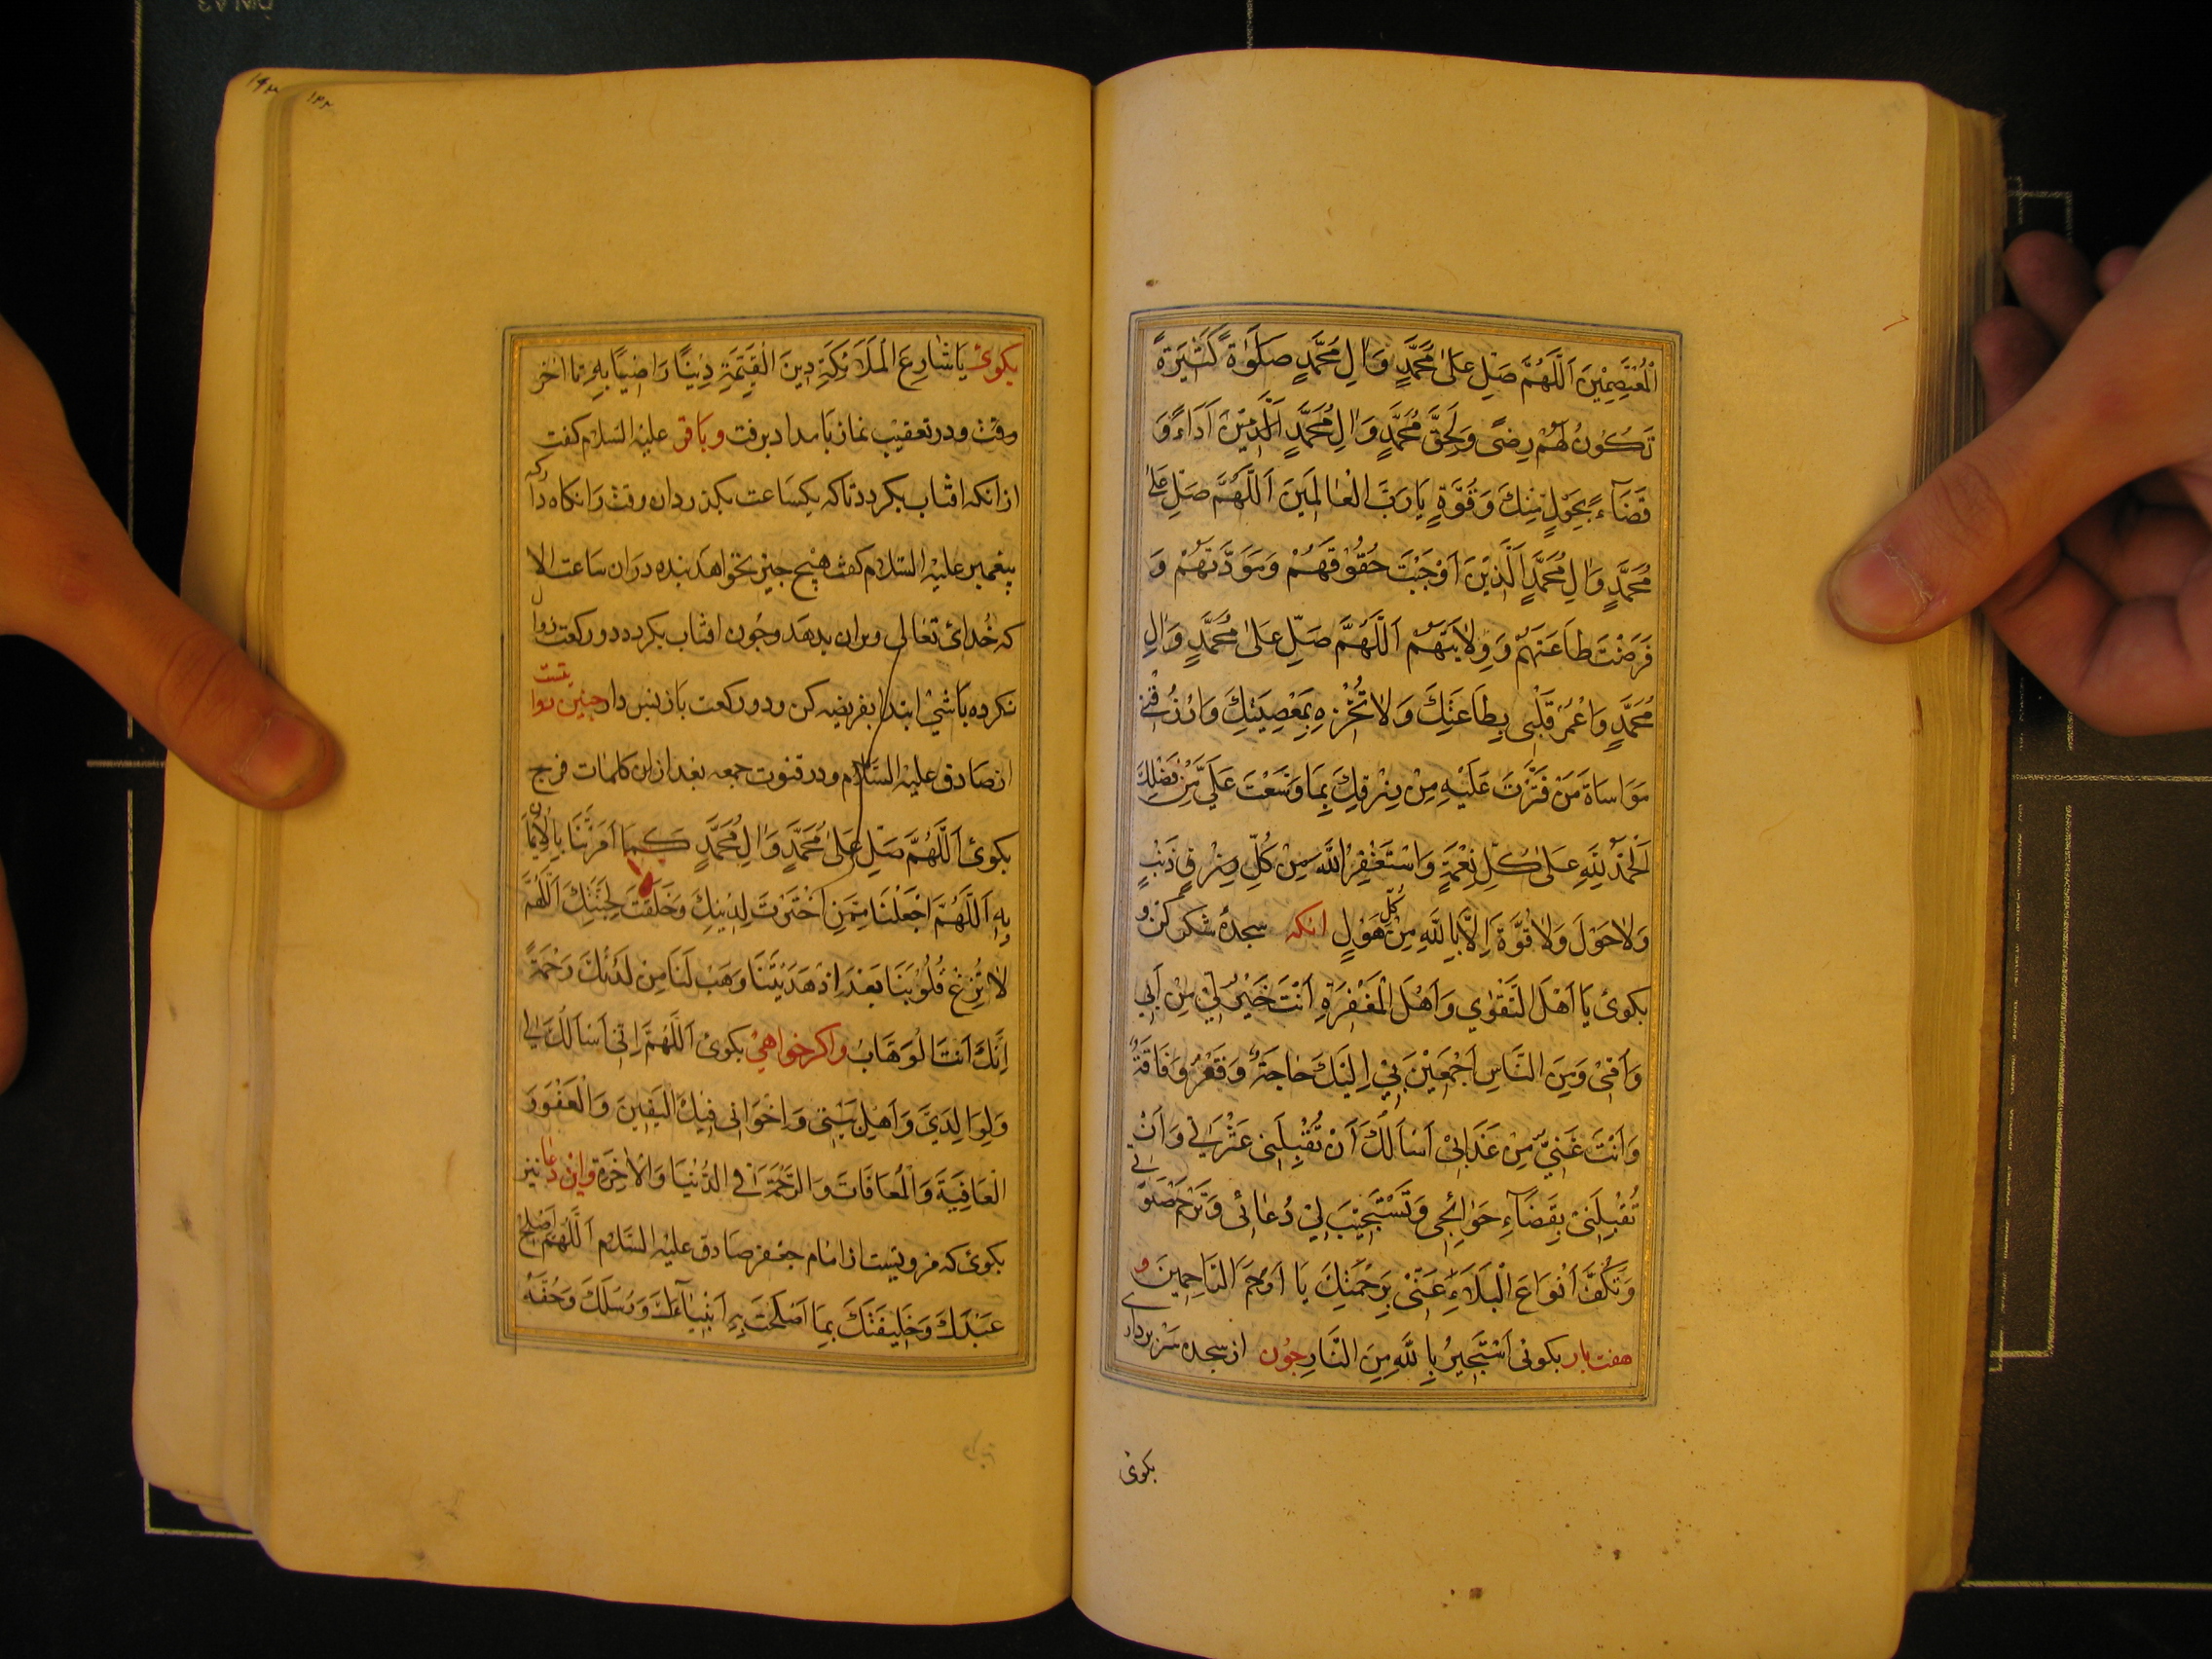 الْمُعْتَصِمِيْنَ اَللّٰهُمَّ صَلِّ عَلىٰ مُحَمَّدٍ وَاٰلِ مُحَمَّدٍ صَلَوٰةً كَثِيَرةً
تَكُوْنُ لَهُمْ رِضىً وَلِحَقِّ مُحَمَّدٍ وَاٰلِ مُحَمَّدٍ اَدَاءً وَ
قَضَآءً بِحَوْلٍ مِنْكَ وَقُوَّةٍ يَارَبَّ الْعٰالَمِيَن اَللّٰهُمَّ صَلِّ عَلىٰ
مُحَمَّدٍ وَاٰلِ مُحَمَّدٍ اَلَّذِيْنَ اَوْجَبْتَ حُقُوْقَهُمْ وَمَوَدَّتَهُمْ وَ
فَرَضْتَ طَاعَتَهُمْ وَوِلاٰيَتَهُمْ اَللّٰهُمَّ صَلِّ عَلىٰ مُحَمَّدٍ وَاٰلِ
مُحَمَّدٍ وَاعْمُرْ قَلْبِى بِطَاعَتِكَ وَلاٰ تُخْزِهِ بِمَعْصِيَتِكَ وَارْزُقْنِى
مَوَاسَاةَ مَنْ قَتَّرْتَ عَلَيْهِ مِنْ رِزْقِكَ بِمَا وَسَّعْتَ عَلَىَّ مِنْ فَضْلِكَ
اَلْحَمْدُ لِلّٰهِ عَلىٰ كُلِّ نِعْمَةٍ وَاَسْتَغْفِرُ اللّٰهَ مِنْ كُلِّ ذَنْبٍ
وَلاٰحَوْلَ وَلاٰقُوَّةَ اِلاَّ بِاللّٰهِ مِنْ كُلِّ هَوْلٍ انكه سجدۀ شكر كن و
بكوئ يَا اَهْلَ التَّقْوٰي وَاَهْلَ الْمَغْفِرَةِ اَنْتَ خَيْرٌ لِيْ مِنْ اَبِي
وَاُمِّيْ وَمِنَ النَّاسِ اَجْمَعِيْنَ بِيْ اِلَيْكَ حَاجَةٌ وَفَقْرٌ وَفَاقَةٌ
وَاَنْتَ غَنِيٌّ مِنْ عَذَابِىْ اَسْاَلُكَ اَنْ تُقْبِلَنِى عَثْرَتِي وَاَنْ
تُقْبِلَنِىْ بِقَضَآءِ حَوٰائِجِى وَتَسْتَجِيْبَ لِيْ دُعٰائِى وَتَرْحَمَ
وَتَكُفَّ اَنْوَاعَ الْبَلاَءِ عَنّىْ بِرَحْمَتِكَ يَا اَرْحَمَ الرَّاحِمِينَ و
هفت بار بكوئى اَسْتَجِيرُ بِاللّٰهِ مِنَ النَّارِ چون از سجده سر بردارى
بكوئى
بكوئ يَا شٰارِعَ الْمَلَائِكَةِ دِينَ الْقَيِّمَةِ دِيْنًا رَاضِيًا بِهِ تا اخر
وقت ودر تعقيب نماز بامداد برفت وباقر عليه السلام كفت
ازانكه افتاب بكردد تاكه يكساعت بكذرد ان وقت
پيغمبر عليه السلام كفت هيچ چيز نخواهد بنده دران ساعت الا
كه خُداىٔ تعالى ويرا ان بدهد وچون افتاب بكردد دو ركعت
نكرده باشي ابتدا بفريضه كن ودو ركعت باز پس دار چنين روايتست
از صادق عليه السلام ودر قنوت جمعه بعد ازان كلمات فرج
بكوئ اَللّٰهُمَّ صَلِّ عَلىٰ مُحَمَّدٍ وَاٰلِ مُحَمَّدٍ كَمَا اَمَرْتَنَا بِالاِيْمَانِ
بِهِ اَللّٰهُمَّ اجْعَلْنَا مِمَّنِ اخْتَرْتَ لِدِيْنِكَ وَخَلَقْتَ لِجَنَّتِكَ اَللّٰهُمَّ
لاٰ تُزِغْ قُلُوْبَنَا بَعْدَ اِذْ هَدَيْتَنَا وَهَبْ لَنَا مِنْ لَدُنْكَ رَحْمَةً
اِنَّكَ اَنْتَ الْوَهَّابُ واكر خواهيْ بكوئ اَللّٰهُمَّ اِنِّى اَسْاَلُكَ لِي
وَلِوَالِدَيَّ وَاَهْلِ بَيْتِى وَاِخْوَانِى فِيْكَ الْيَقِينَ وَالْعَفْوَ وَ
الْعَافِيَةَ وَالْمُعَافَاتَ وَالرَّحْمَةَ فِي الدُّنْيَا وَالاٰخِرَةِ واين دعا نيز
بكوئ كه مرويست از امام جعفر صادق عليه السلام اَللّٰهُمَّ اَصْلِحْ
عَبْدَكَ وَخَلِيفَتَكَ بِمَا اَصْلَحْتَ بِهِ اَنْبِيٰآءَكَ وَرُسُلَكَ وَحُفَّهُ